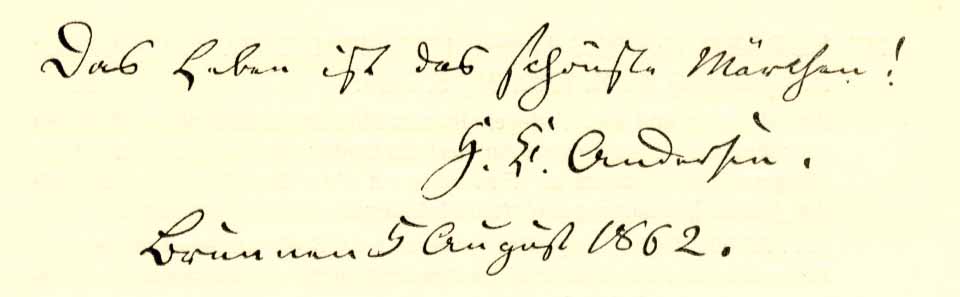 Das Leben ist das schönste Märchen!
H. C. Andersen.
Brunnen 5 August 1862.